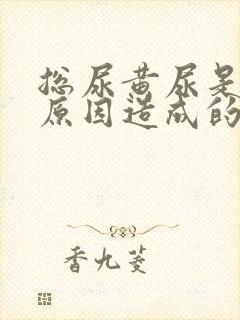 总尿黄尿是
原因造成的
香九菱